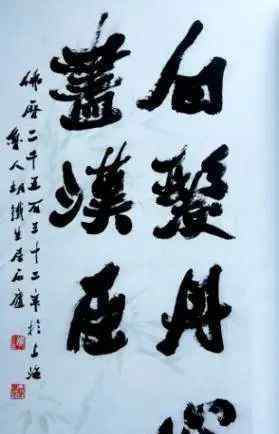 白髮丹心
盡漢臣
佛曆二千五百三十二年於上海
魯人胡鐵生居石廬